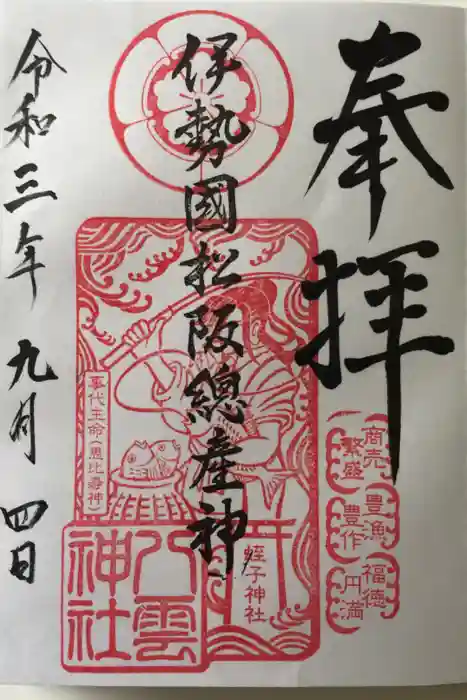 奉拝
商売繁盛
豊漁豊作
福徳円満
伊勢國松阪總産神
蛭子神社
事代主命(恵比壽神)
八雲神社
令和三年九月四日